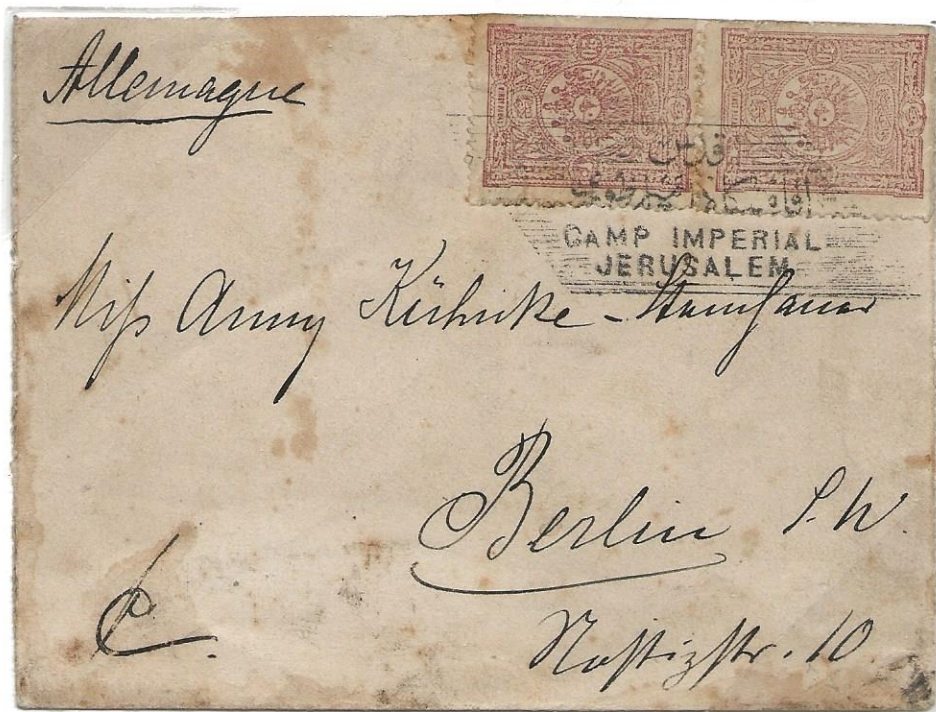 Allemagne
CAMP IMPERIAL
JERUSALEM
Miss Anny Kühnke-
Berlin S.W.
Nostizstr. 10